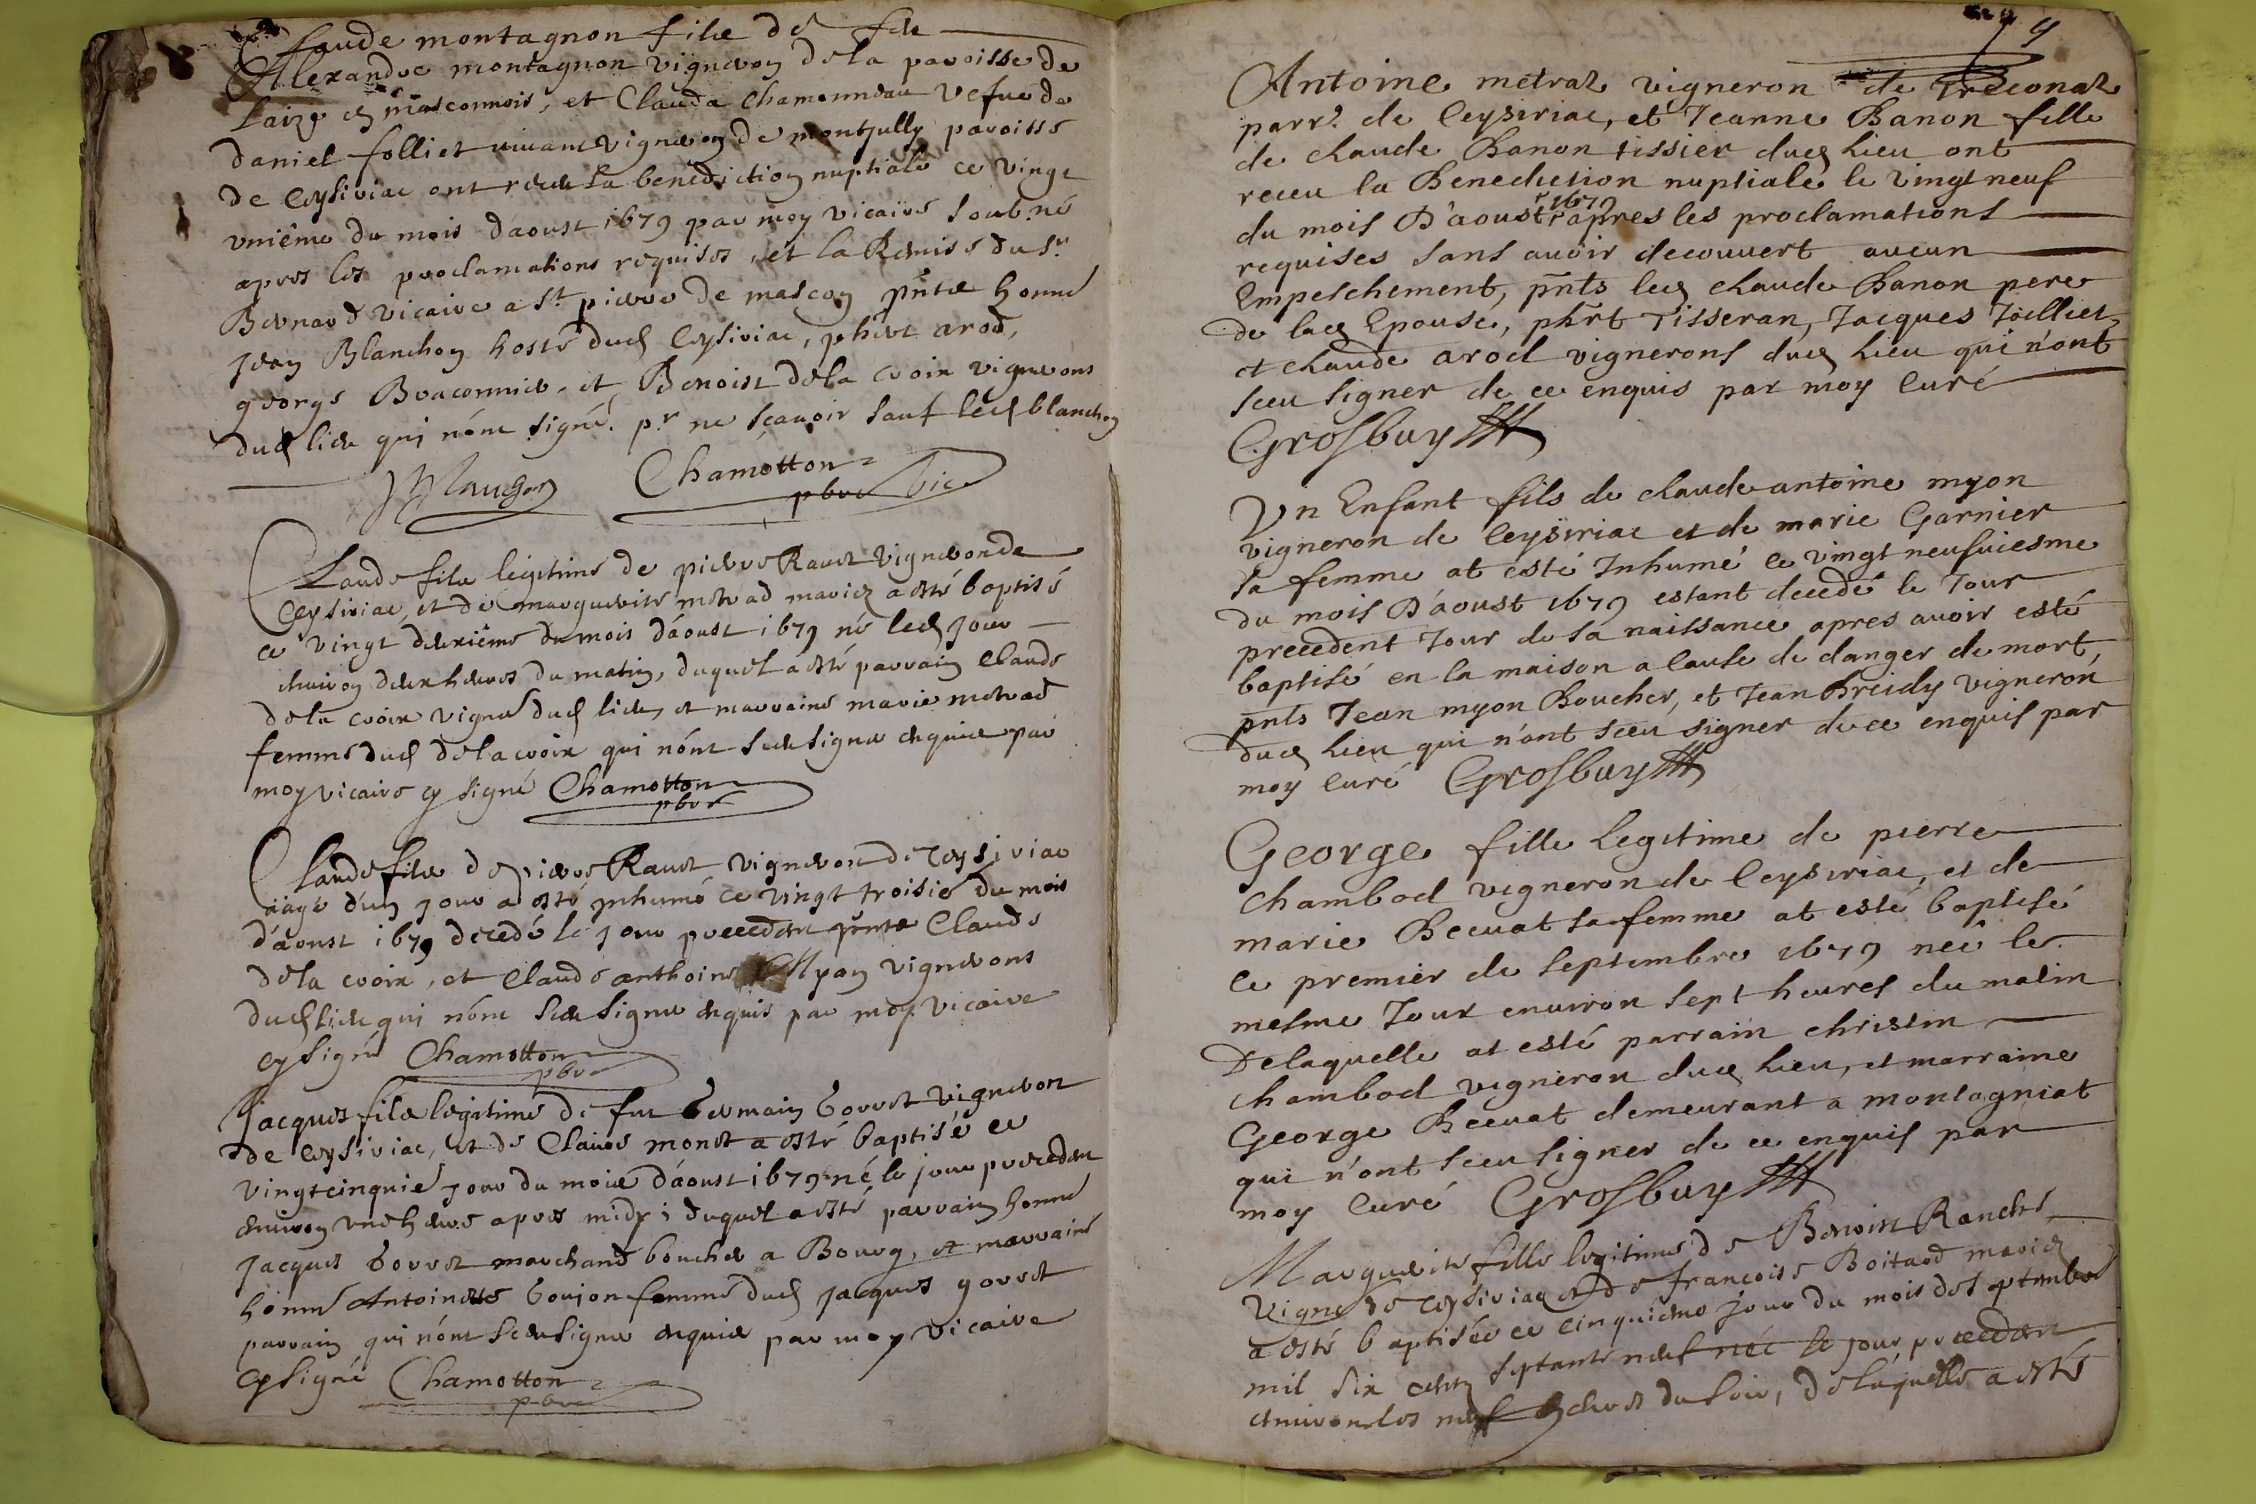 Claude montagnon filz de feu
Alexandre montagnon vigneron de la paroisse de
Laizé en masconnois, et Clauda Chamonneau vefue de
daniel folliet vivant vigneron de montjully paroisse
de Ceysiriac ont receu la benediction nuptiale ce vingt
vniême du mois d'aoust 1679 par moy vicaire soubné
apres les proclamations requises, et la Remise du sr
Bernard vicaire a st pierre de mascon pnte honné
Jean Blanchon hoste dud Ceysiriac, phibt arod,
george Braconnier, et Benoist dela croix vignerons
dud lieu qui n'ont signé pr ne scavoir sauf led blanchon
JBlanchon Chamotton pbre vic
Claude filz legitime de pierre Ravet vigneron de
Ceysiriac, et de marguerite metrad mariez a esté baptisé
ce vingt deuxiême du mois d'aoust 1679 né led jour
enuiron deux heures du matin, duquel a esté parrain Claude
dela croix vigne dud lieu, et marraine marie metrad
femme dud delacroix qui n'ont sceu signer enquis par
moy vicaire cy signé Chamotton pbre
Claude filz de pierre Ravet vigneron de Ceysiriac
aagé d'un jour a esté inhumé ce vingt troisié du mois
d'aoust 1679 decedé le jour precedent pnte Claude
dela croix, et Claude anthoine Myon vignerons
dud lieu qui n'ont sceu signer enquis par moy vicaire
cy signé Chamotton pbre
Jacques filz legitime de feu Germain Gorret vigneron
de Ceysiriac, et de Claire monet a esté baptisé ce
vingt cinquié jour du mois d'aoust 1679 né le jour precedent
enuiron vne heure apres midy; duquel a esté parrain honné
Jacques Gorret marchand boucher a Bourg, et marraine
honné Antoinette Goujon femme dud Jacques gorret
parrain qui n'ont sceu signer enquis par moy vicaire
cy signé Chamotton pbre
79
Antoine metral vigneron de Treconal
parr. de Ceysiriac, et Jeanne Banon fille
de claude Banon tissier dud lieu ont
receu la Benediction nuptiale le vingt neuf
du mois D'aoust 1679 apres les proclamations
requises sans auoir decouuert aucun
Empeschement, pnts led claude Banon pere
de lad Epouse, phrt Tisseran, Jacques Jolliet,
et claude arod vignerons dud lieu qui n'ont
sceu signer de ce enquis par moy curé
Grosbuy
Un Enfant fils de claude antoine myon
vigneron de Ceysiriac et de marie Garnier
sa femme at esté Inhumé ce vingt neufuiesme
du mois D'aoust 1679 estant decedé le Jour
precedent Jour de sa naissance apres auoir esté
baptisé en la maison a cause de danger de mort,
pnts Jean myon Boucher, et Jean Breidy vigneron
dud lieu qui n'ont sceu signer de ce enquis par
moy curé Grosbuy
George fille legitime de pierre
chambod vigneron de Ceysiriac, et de
marie Becuat sa femme at esté baptisé
ce premier de septembre 1679 neé le
mesme Jour enuiron sept heures du matin
Delaquelle at esté parrain christin
chambod vigneron dud lieu, et marraine
George Becuat demeurant a montagniat
qui n'ont sceu signer de ce enquis par
moy curé Grosbuy
Marguerite fille legitime de Benoist Ranche
Vigne de Ceysiriac et de francoise Boitard mariez
a esté baptisée ce cinquieme jour du mois de septembre
mil six cents septante neuf née le jour precedent
enuiron les neuf heures du soir, de laquelle a esté